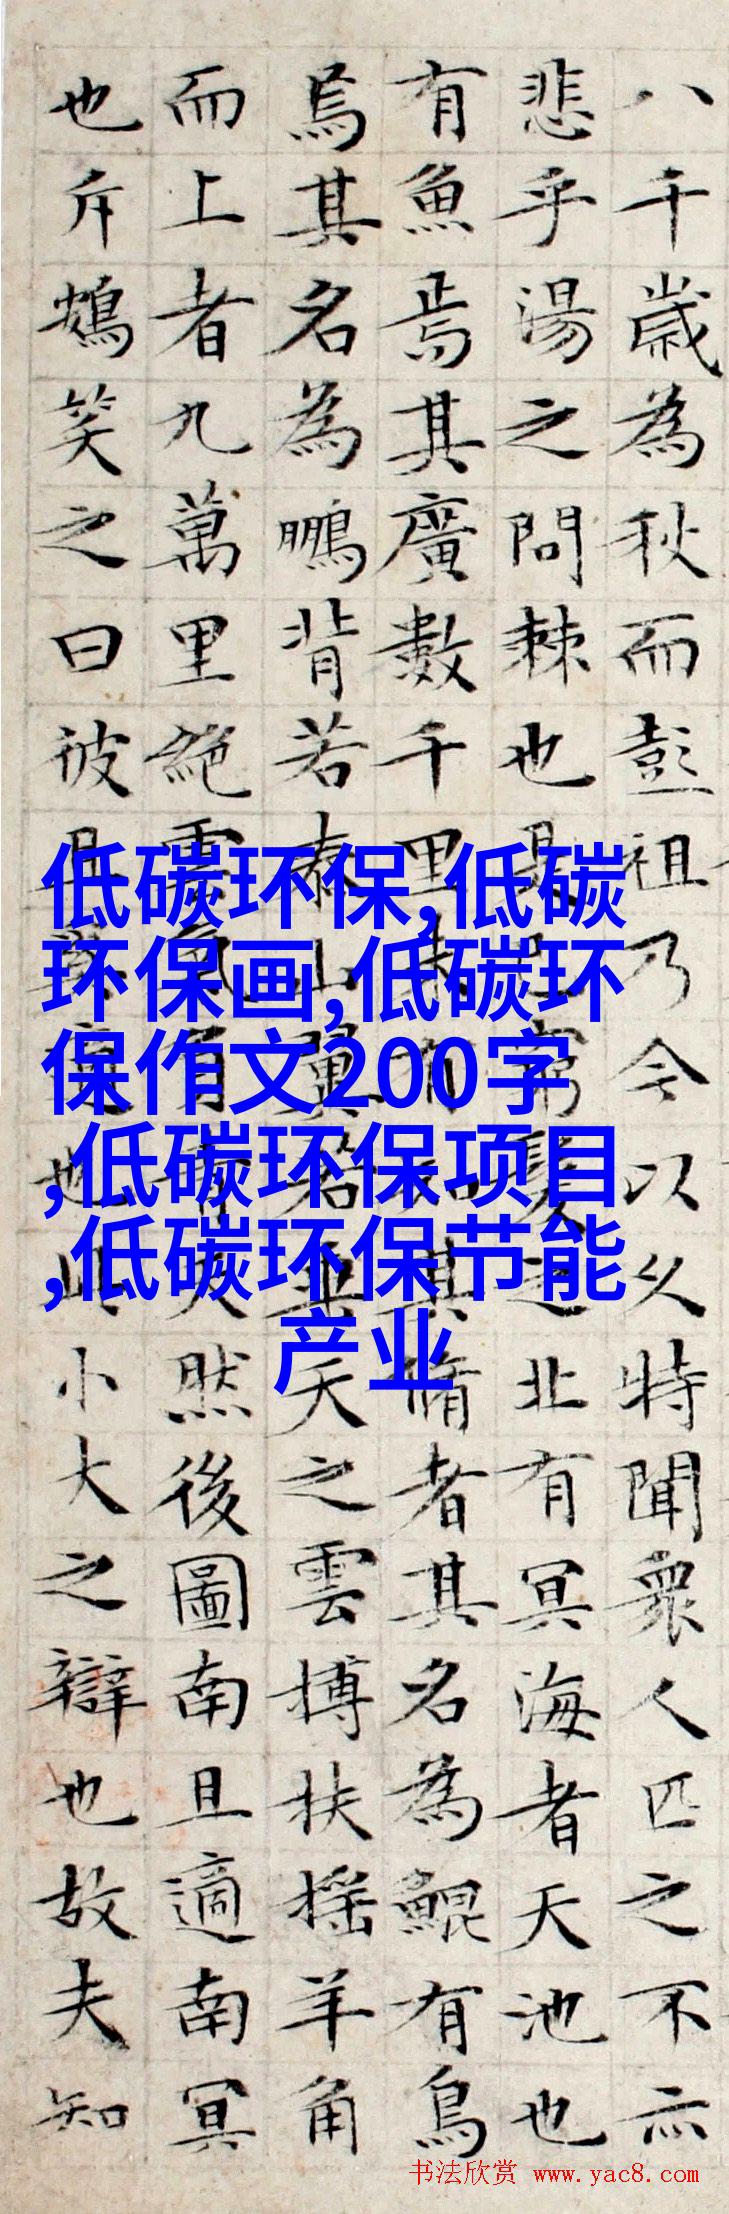 八千歲為秋而彭祖乃今以久特聞衆人匹之不亦
悲乎湯之問棘也是已窮髮之北有冥海者天池也
有魚焉其廣數千里未有知其脩者其名為鯤有鳥
焉其名為鵬背若泰山翼若垂天之雲摶扶摇羊角
而上者九萬里絕雲氣負青天然後圖南且適南冥
也斥鴳笑之曰彼且也此小大之辯也故夫知
低碳环保,低碳
环保画,低碳环
保作文200字
,低碳环保项目
,低碳环保节能
产业
书法欣赏 www.yac8.com